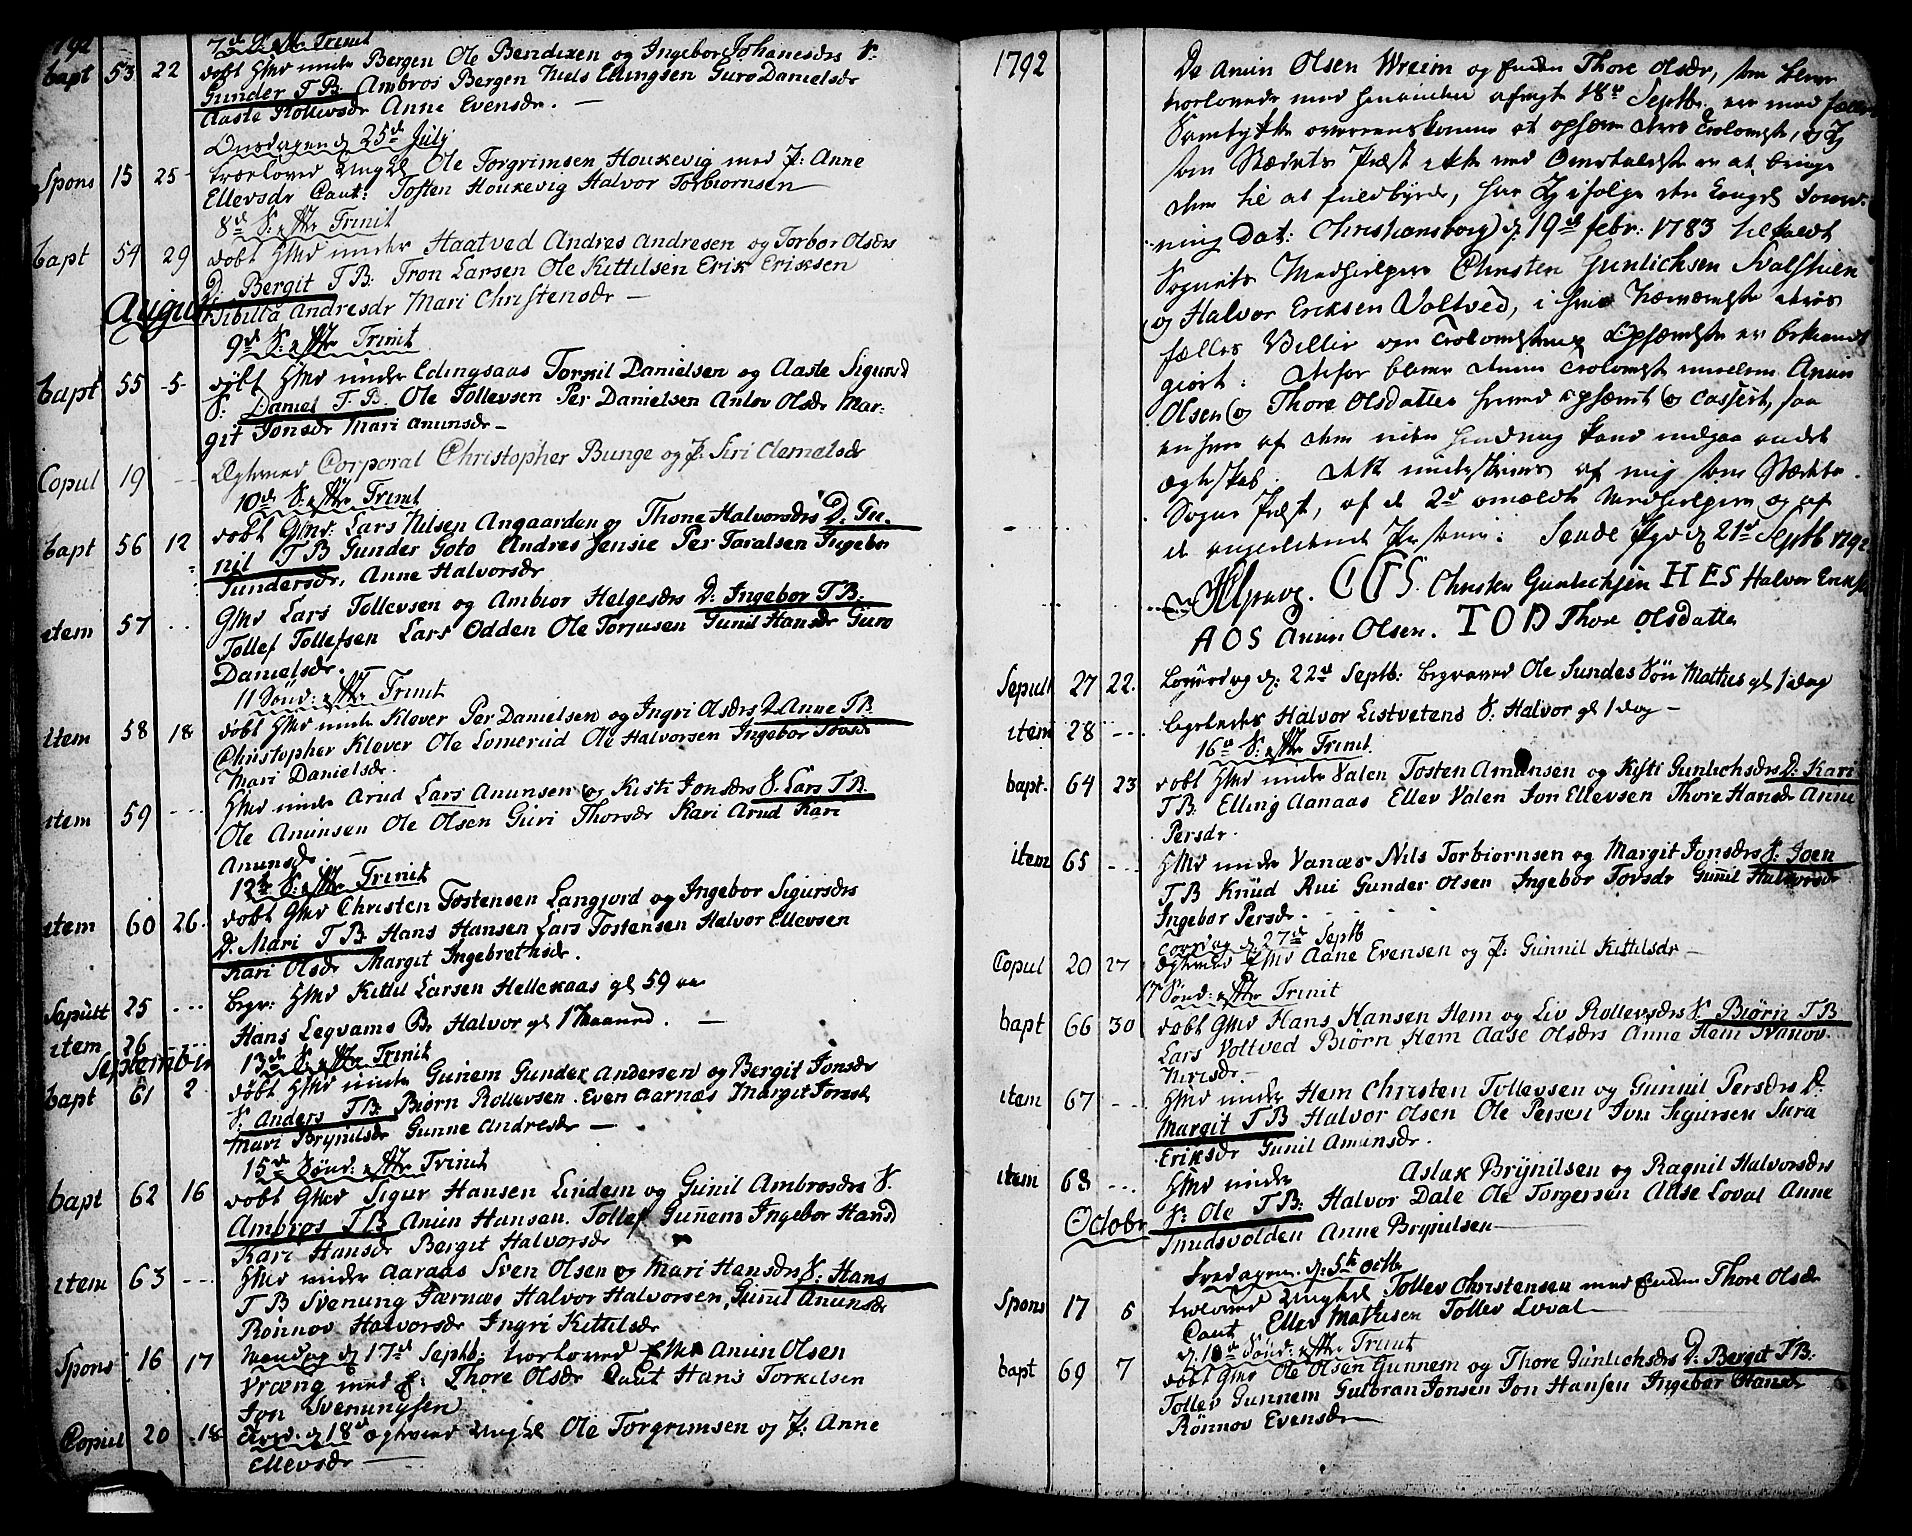 1792
7de S: eftr Trinit
bapt 53 22 døbt Hmd under Bergen Ole Bendixen og Ingebor Johanesdr S:
Gunder T B: Ambros Bergen Niels Ellingsen Guro Danielsdr
Aaste Rollevsdr Anne Evensdr. —
Onsdagen d 25de July
Spons 15 25 - troeloved Ungkl Ole Torgrimsen Houkevig med P: Anne
Ellevsdr Caut: Tosten Houkevig Halvor Torbiornsen —
8de S: eftr Trinit
bapt 54 29 døbt Hmd under Haatved Andres Andresen og Torbor Olsdrs
D: Bergit T B: Tron Larsen Ole Kittilsen Erik Eriksen
August Sibilla Andresdr Mari Christensdr —
9de S: eftr Trinit
bapt 55 -5- døbt Hmd under Edingsaas Tormil Danielsen og Aaste Sigursd
S: Daniel T B. Ole Tollevsen Per Danielsen Anlov Olsdr Mar-
git Jonsdr Mari Anunsdr —
Copul 19 -- Ægteviet Corporal Christopher Bunge og P: Siri Clemetsdr
10de S: eftr Trinit
bapt 56 12 døbt Gmd: Lars Nilsen Angaarden og Thone Halvorsdrs D: Gu-
nil T B Gunder Goto Andres Jensie Per Taralsen Ingebor
Gundersdr, Anne Halvorsdr
item 57 --- Gmd Lars Tollevsen og Ambior Helgesdrs D: Ingebor T B:
Tollef Tollefsen Lars Odden Ole Torjusen Gunil Hansdr Guro
Danielsdr.
11 Sønd: eftr Trinit
item 58 18 døbt Hmd under Klover Per Danielsen og Ingri Olsdrs D Anne T B:
Christopher Klover Ole Lomerud Ole Halvorsen Ingebor
Mari Danielsdr.
item 59 --- Hmd under Arud Lars Anunsen og Kisti Jonsdrs S. Lars T B
Ole Anunsen Ole Olsen Guri Thorsdr Kari Arud Kari
Anunsdr —
12te S: eftr Trinit
item 60 26. døbt Gmd Christen Tostensen Langjord og Ingebor Sigursdrs
D: Mari T B Hans Hansen Lars Tostensen Halvor Ellevsen
Kari Olsdr Margit Ingebrethsdr.
Sepult 25 --- begr: Hmd Kittil Larsen Hellekaas gl 59 aar
item 26 --- Hans Legvams B. Halvor gl 1 Maaned. —
September 13de S: eftr Trinit
bapt 61 2 døbt Hmd under Gunem Gunder Andersen og Bergit Jonsdr
S. Anders T B: Biorn Rollevsen. Even Aarnæs Margit
Mari Brynilsdr Gunne Andresdr —
15de Sønd: eftr Trinit
bapt 62 16 døbt Gmd Sigur Hansen Lindem og Gunil Ambrosdrs S.
Ambros T B Anun Hansen. Tollef Gunnem Ingebor Hansd
Kari Hansdr Bergit Halvorsdr
item 63 --- Hmd under Aaraas Sven Olsen og Mari Hansdrs S: Hans
T B Svenung Jærnæs Halvor Halvorsen, Gunnil Anunsdr
Rønnov Halvorsdr Ingri Kittilsdr
Spons 16 17 Mandag d 17de Septb: troeloved Anun Olsen
Vræng med P: Thore Olsdr Caut Hans Torkilsen
Jon Svenungsen
Copul 20 18 d 18de Ægteviet Ungkl Ole Torgrimsen og P: Anne
Ellevsdr —
1792
De Anun Olsen Wreim og Enken Thore Olsdr, som bleve
troelovede med hinanden 18de Septb. er med fælles
Samtykke overeenskomne at ophæve deres Trolovelse, og Jeg
som Stædets Præst ikke ved Omstændigst er at bringe
dem til at fuldbyrde, har Jeg ifølge den Kongel. Forord-
ning Dat: Christiansborg d 19de febr: 1783 tilkaldt
Sognets Medhielpere Christen Gunlichsen Svalstuen
og Halvor Eriksen Voltved, i hvis Nærværelse deres
fælles Villie om Trolovelsens Ophævelse er bekiendt
giort. derfor bliver denne Trolovelse imellem Anun
Olsen og Thore Olsdatter herved ophævet og casseret, saa
en hver af dem uden hindring kand indgaae andet
Ægteskab. dette underskrives af mig som Stædets
Sogne Præst, af de 2de omældte Medhielpere og af
de vedkommende Personer. Sende Pgd d 21de Septb 1792
CGS. Christen Gunlichsen HES Halvor Eriksen
AOS Anun Olsen. TOD Thore Olsdatter
Sepult 27 22. Løverdag d. 22de Septb: begraved Ole Sundes Søn Mathes gl 1 dag
item 28 --- Halvor Listvetens S: Halvor gl 1 dag —
16de S: eftr Trinit.
bapt. 64 23 døbt Hmd under Valen Tosten Amunsen og Kisti Gunlichsdrs D: Kari
T B. Elling Aanaas Ellev Valen Jon Ellevsen Thore Hansdr Anne
Persdr.
item 65 --- Hmd under Vanæs Nils Torbiornsen og Margit Jonsdrs S: Joen
T B Knud Rui Gunder Olsen Ingebor Tovsdr Gunnil Halvorsdr
Ingebor Persdr.
Torsdag d 27de Septb
Copul 20 27 Ægteviet Hmd Aane Evensen og P: Gunnil Kittilsdr —
17 Sønd: eftr Trinit
bapt 66 30 døbt Gmd Hans Hansen Hem og Liv Rollevsdrs S: Biørn T B
Lars Voltved Biørn Hem Aase Olsdrs Anne Hem
Nirisdr.
item 67 --- Hmd under Hem Christen Tollevsen og Gunnil Persdrs D:
Margit T B Halvor Olsen Ole Persen Jon Sigursen Sara
Eriksdr Gunil Amunsdr.
item 68 --- Hmd under Aslak Brynilsen og Ragnil Halvorsdrs
Octobr S: Ole T B: Halvor Dale Ole Torgersen Aase Loval Anne
Smedsvolden Anne Brynilsen —
Fredagen d. 5te octb
Spons 17 5 troloved Ungkl Tollev Christensen med Enken Thore Olsdr
Caut Ellev Mathisen Tollev Loval —
d 18de Sønd: eftr Trinit
bapt 69 7 døbt Gmd Ole Olsen Gunnem og Thore Gunlichsdrs D: Bergit T B:
Tollev Gunnem Gulbran Jonsen Jon Hansen Ingebor Hansdr
Rønnov Evensdr —